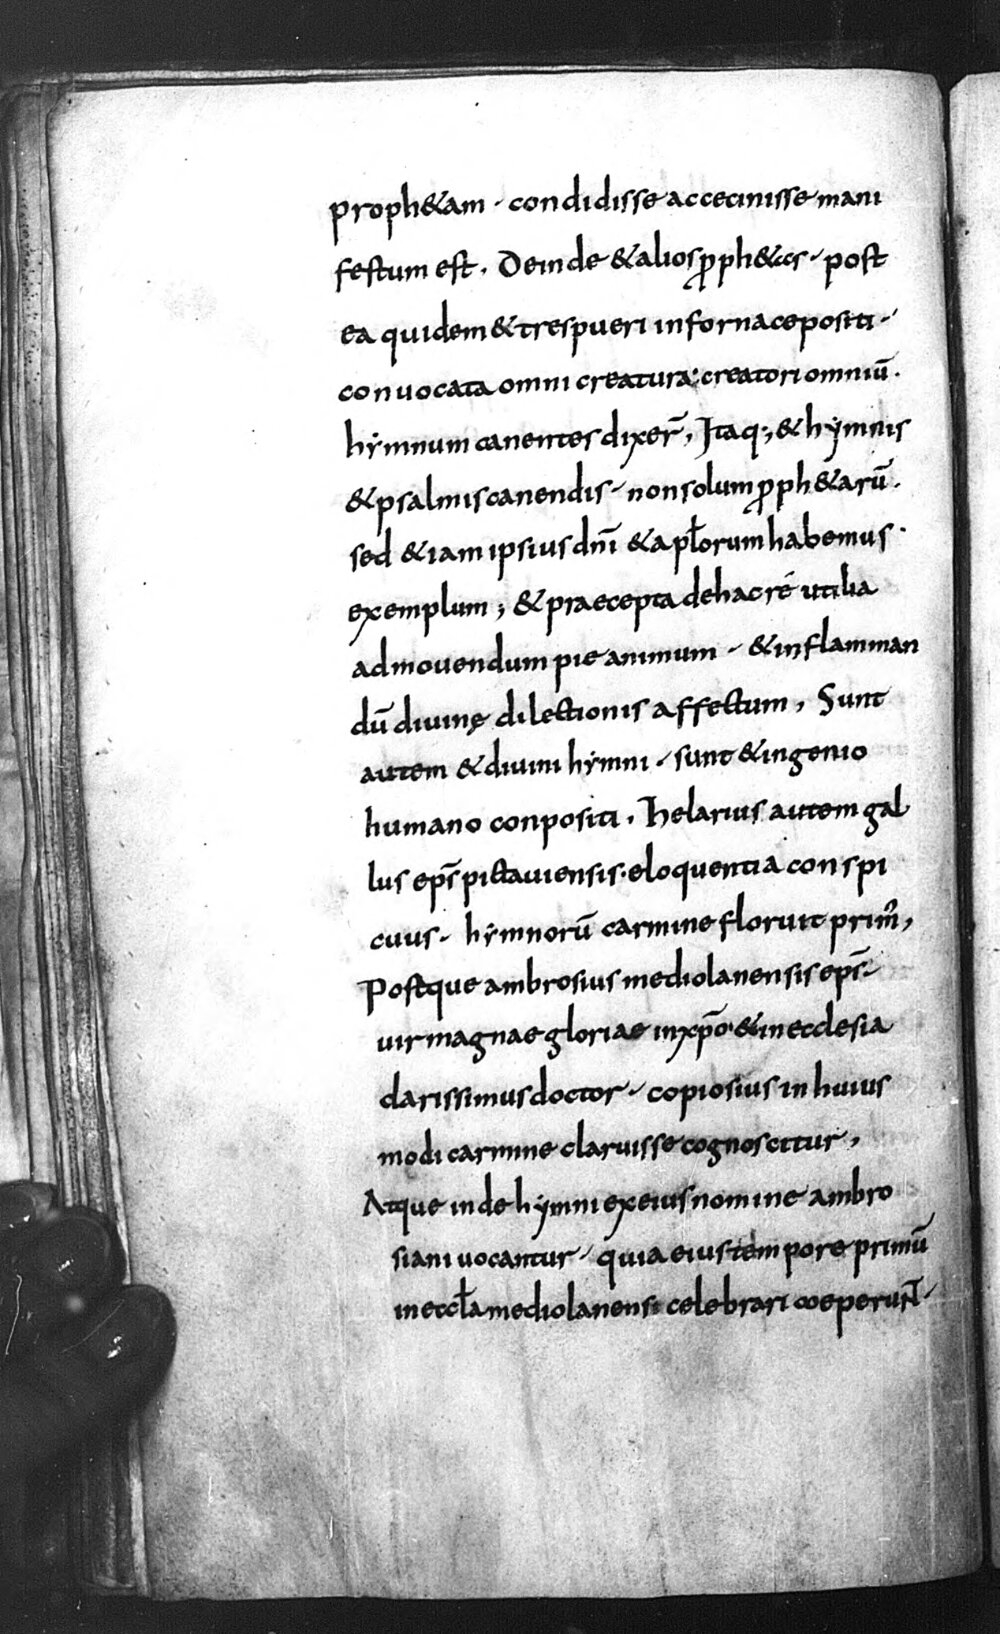 proph&am · condidisse ac cecinisse mani
festum est . Deinde & alios p̱ph&as · post
ea quidem & tres pueri in fornace positi ·
conuocata omni creatura : creatori omniū .
hẏmnum canentes dixer̄ , Itaq·; & hẏmnis
& psalmis canendis · non solum p̱ph&arū .
sed &iam ipsius dn̄i & apl̄orum habemus ·
exemplum ; & praecepta de hac re utilia
ad mouendum pie animum · & inflamman
dū diuinę dilectionis affectum , Sunt
autem & diuini hẏmni · sunt & ingenio
humano conpositi . Helarius autem gal
lus ep̄s pictauiensis · eloquentia conspi
cuus · hẏmnorū carmine floruit prim᷒ ,
Postque ambrosius mediolanensis ep̄s ·
uir magnae gloriae in xp̄o · & in ecclesia
clarissimus doctor · copiosius in huius
modi carmine claruisse cognoscitur ,
Atque inde hẏmni ex eius nomine ambro
siani uocantur · quia eius tempore primū
in eccl̄a mediolanensi celebrari coeperuN̄ ·